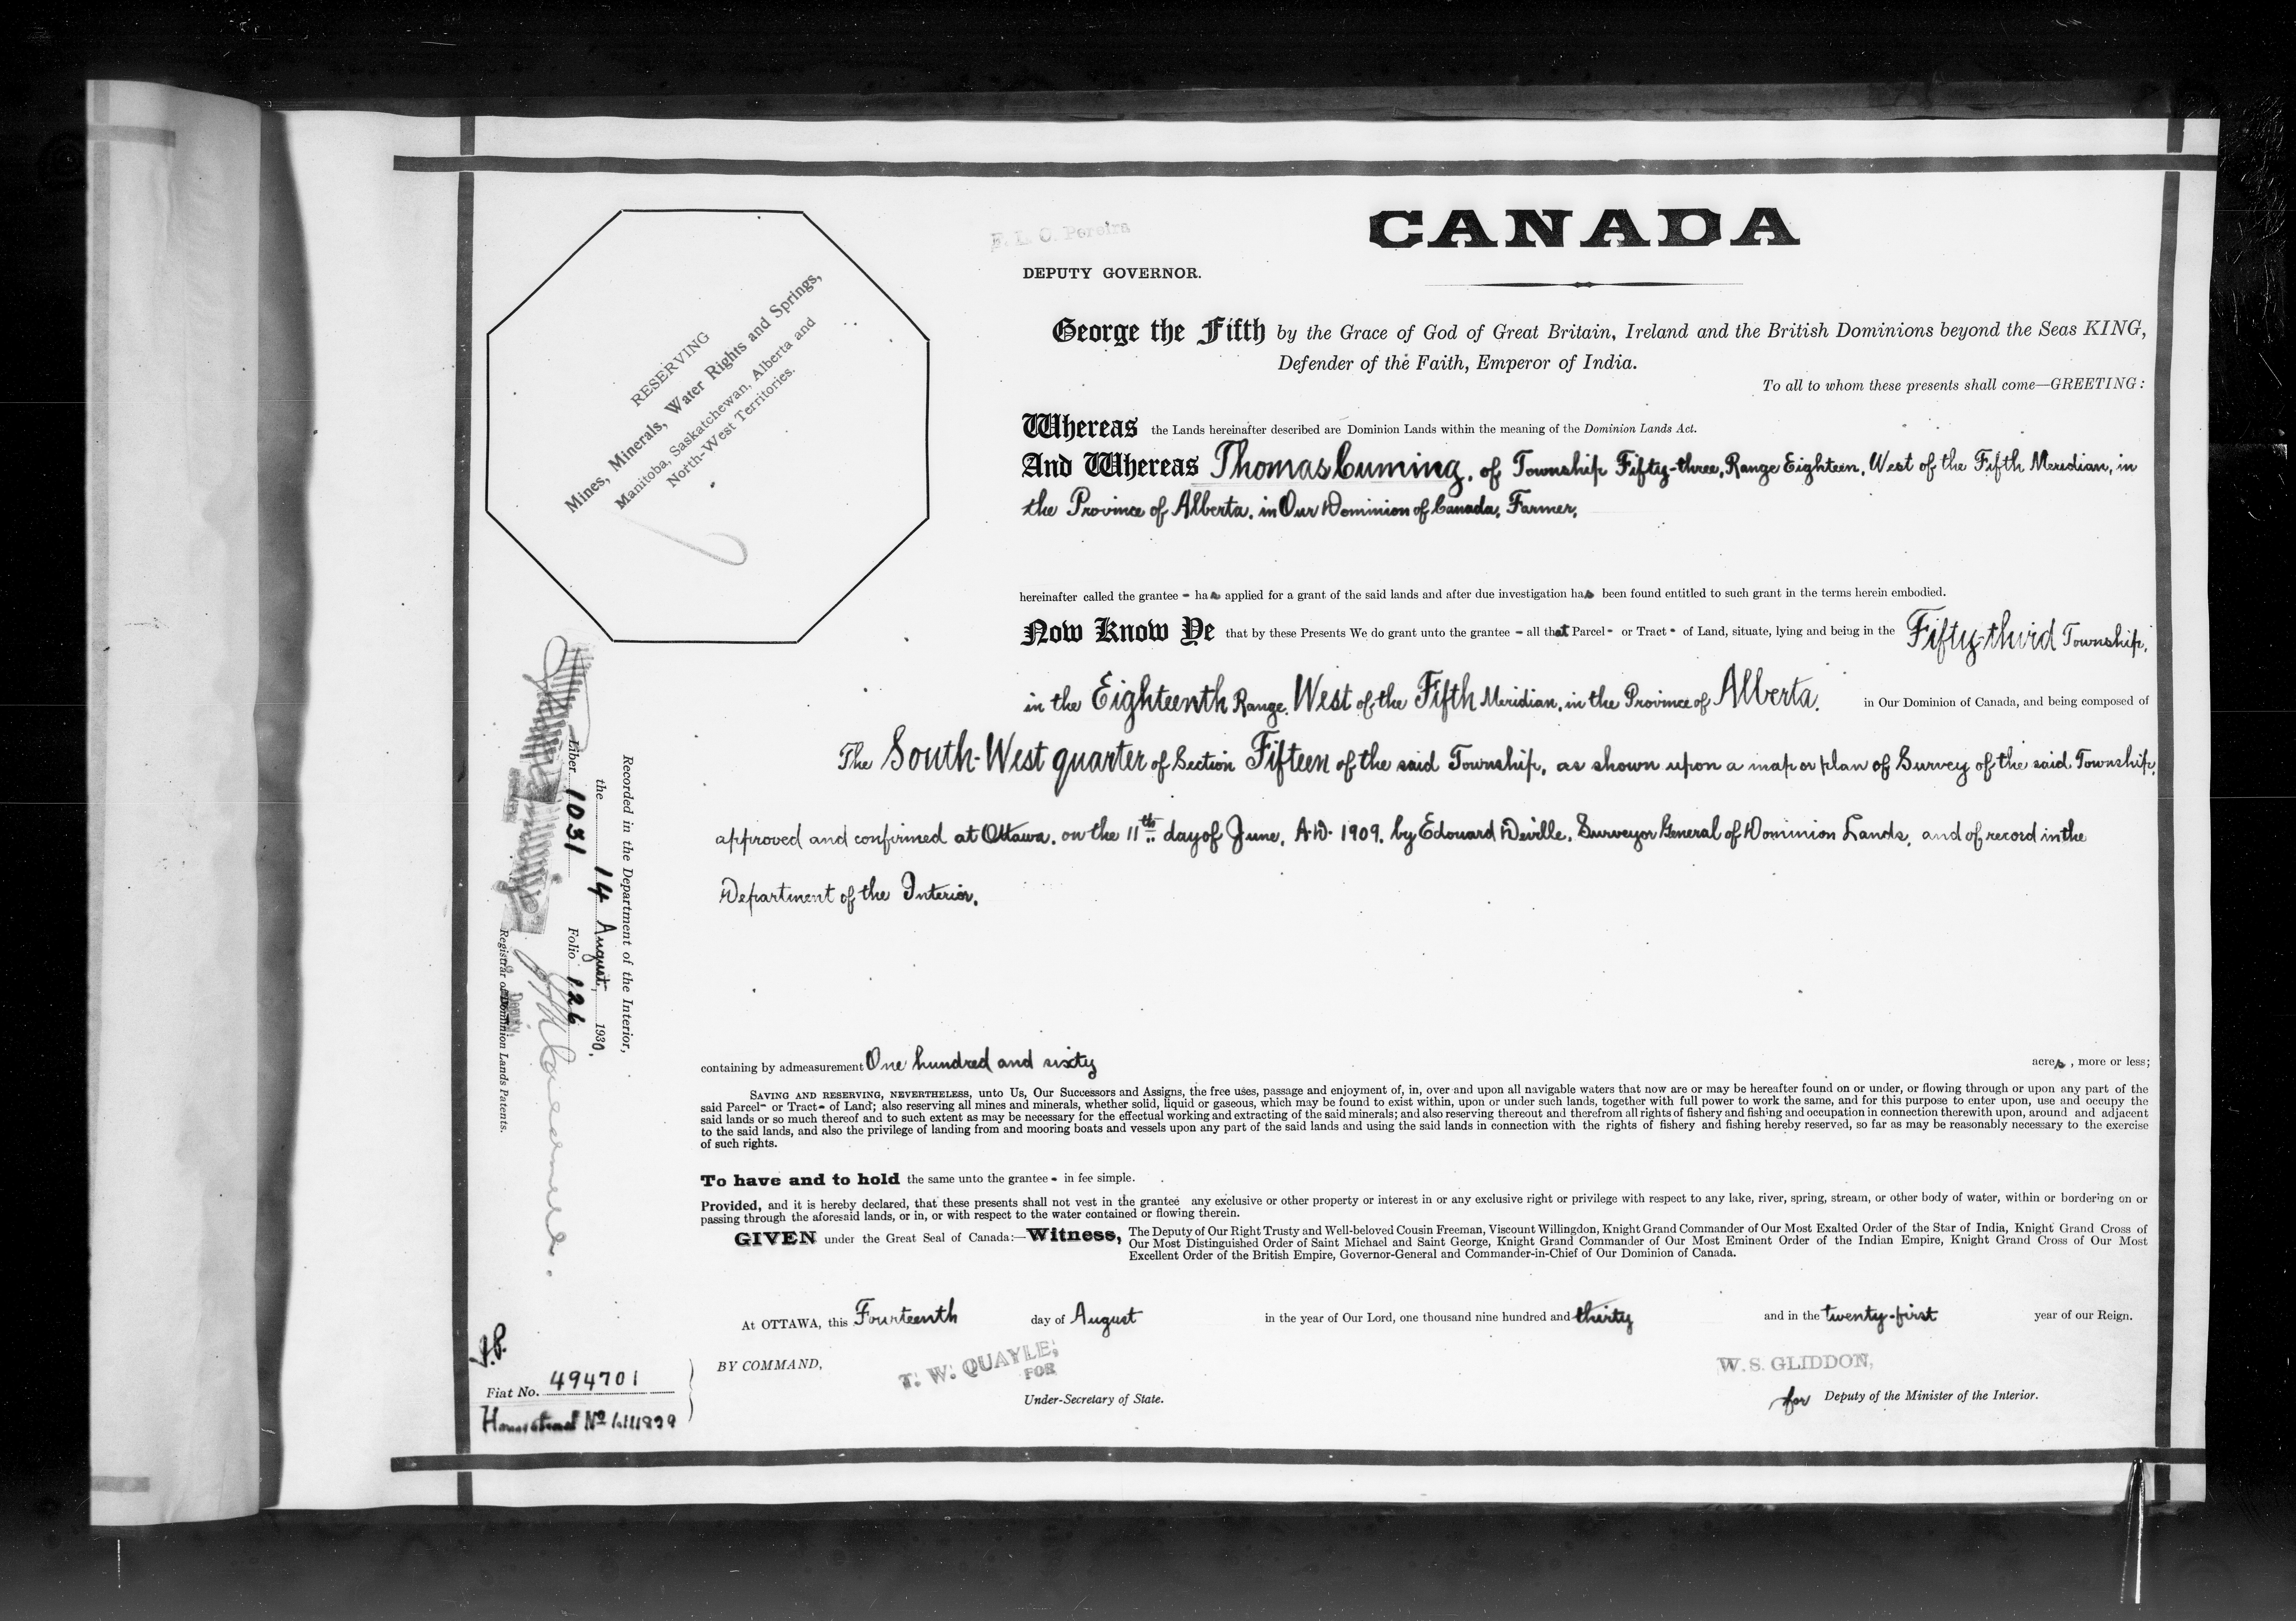 CANADA
F. L. C. Pereira
DEPUTY GOVERNOR.
RESERVING
Mines, Minerals, Water Rights and Springs,
Manitoba, Saskatchewan, Alberta and
North-West Territories.
George the Fifth by the Grace of God of Great Britain, Ireland and the British Dominions beyond the Seas KING,
Defender of the Faith, Emperor of India.
To all to whom these presents shall come—GREETING:
Whereas the Lands hereinafter described are Dominion Lands within the meaning of the Dominion Lands Act.
And Whereas Thomas Cuming, of Township Fifty-three, Range Eighteen, West of the Fifth Meridian, in
the Province of Alberta, in Our Dominion of Canada, Farmer,
hereinafter called the grantee - has applied for a grant of the said lands and after due investigation has been found entitled to such grant in the terms herein embodied.
Now Know Ye that by these Presents We do grant unto the grantee - all that Parcel - or Tract - of Land, situate, lying and being in the Fifty-third Township,
in the Eighteenth Range, West of the Fifth Meridian, in the Province of Alberta, in Our Dominion of Canada, and being composed of
The South-West quarter of Section Fifteen of the said Township, as shown upon a map or plan of Survey of the said Township,
approved and confirmed at Ottawa, on the 11th day of June, A.D. 1909, by Edouard Deville, Surveyor General of Dominion Lands, and of record in the
Department of the Interior.
containing by admeasurement One hundred and sixty acres, more or less;
SAVING AND RESERVING, NEVERTHELESS, unto Us, Our Successors and Assigns, the free uses, passage and enjoyment of, in, over and upon all navigable waters that now are or may be hereafter found on or under, or flowing through or upon any part of the
said Parcel - or Tract - of Land; also reserving all mines and minerals, whether solid, liquid or gaseous, which may be found to exist within, upon or under such lands, together with full power to work the same, and for this purpose to enter upon, use and occupy the
said lands or so much thereof and to such extent as may be necessary for the effectual working and extracting of the said minerals; and also reserving thereout and therefrom all rights of fishery and fishing and occupation in connection therewith upon, around and adjacent
to the said lands, and also the privilege of landing from and mooring boats and vessels upon any part of the said lands and using the said lands in connection with the rights of fishery and fishing hereby reserved, so far as may be reasonably necessary to the exercise
of such rights.
To have and to hold the same unto the grantee - in fee simple.
Provided, and it is hereby declared, that these presents shall not vest in the grantee any exclusive or other property or interest in or any exclusive right or privilege with respect to any lake, river, spring, stream, or other body of water, within or bordering on or
passing through the aforesaid lands, or in, or with respect to the water contained or flowing therein.
GIVEN under the Great Seal of Canada:—Witness, The Deputy of Our Right Trusty and Well-beloved Cousin Freeman, Viscount Willingdon, Knight Grand Commander of Our Most Exalted Order of the Star of India, Knight Grand Cross of
Our Most Distinguished Order of Saint Michael and Saint George, Knight Grand Commander of Our Most Eminent Order of the Indian Empire, Knight Grand Cross of Our Most
Excellent Order of the British Empire, Governor-General and Commander-in-Chief of Our Dominion of Canada.
At OTTAWA, this Fourteenth day of August in the year of Our Lord, one thousand nine hundred and thirty and in the twenty-first year of our Reign.
BY COMMAND,
T. W. QUAYLE,
FOR
Under-Secretary of State.
W. S. GLIDDON,
for Deputy of the Minister of the Interior.
Recorded in the Department of the Interior,
the 14 August, 1930,
Liber 1031 Folio 126
Deputy
Registrar of Dominion Lands Patents.
Fiat No. 494701
Homestead No